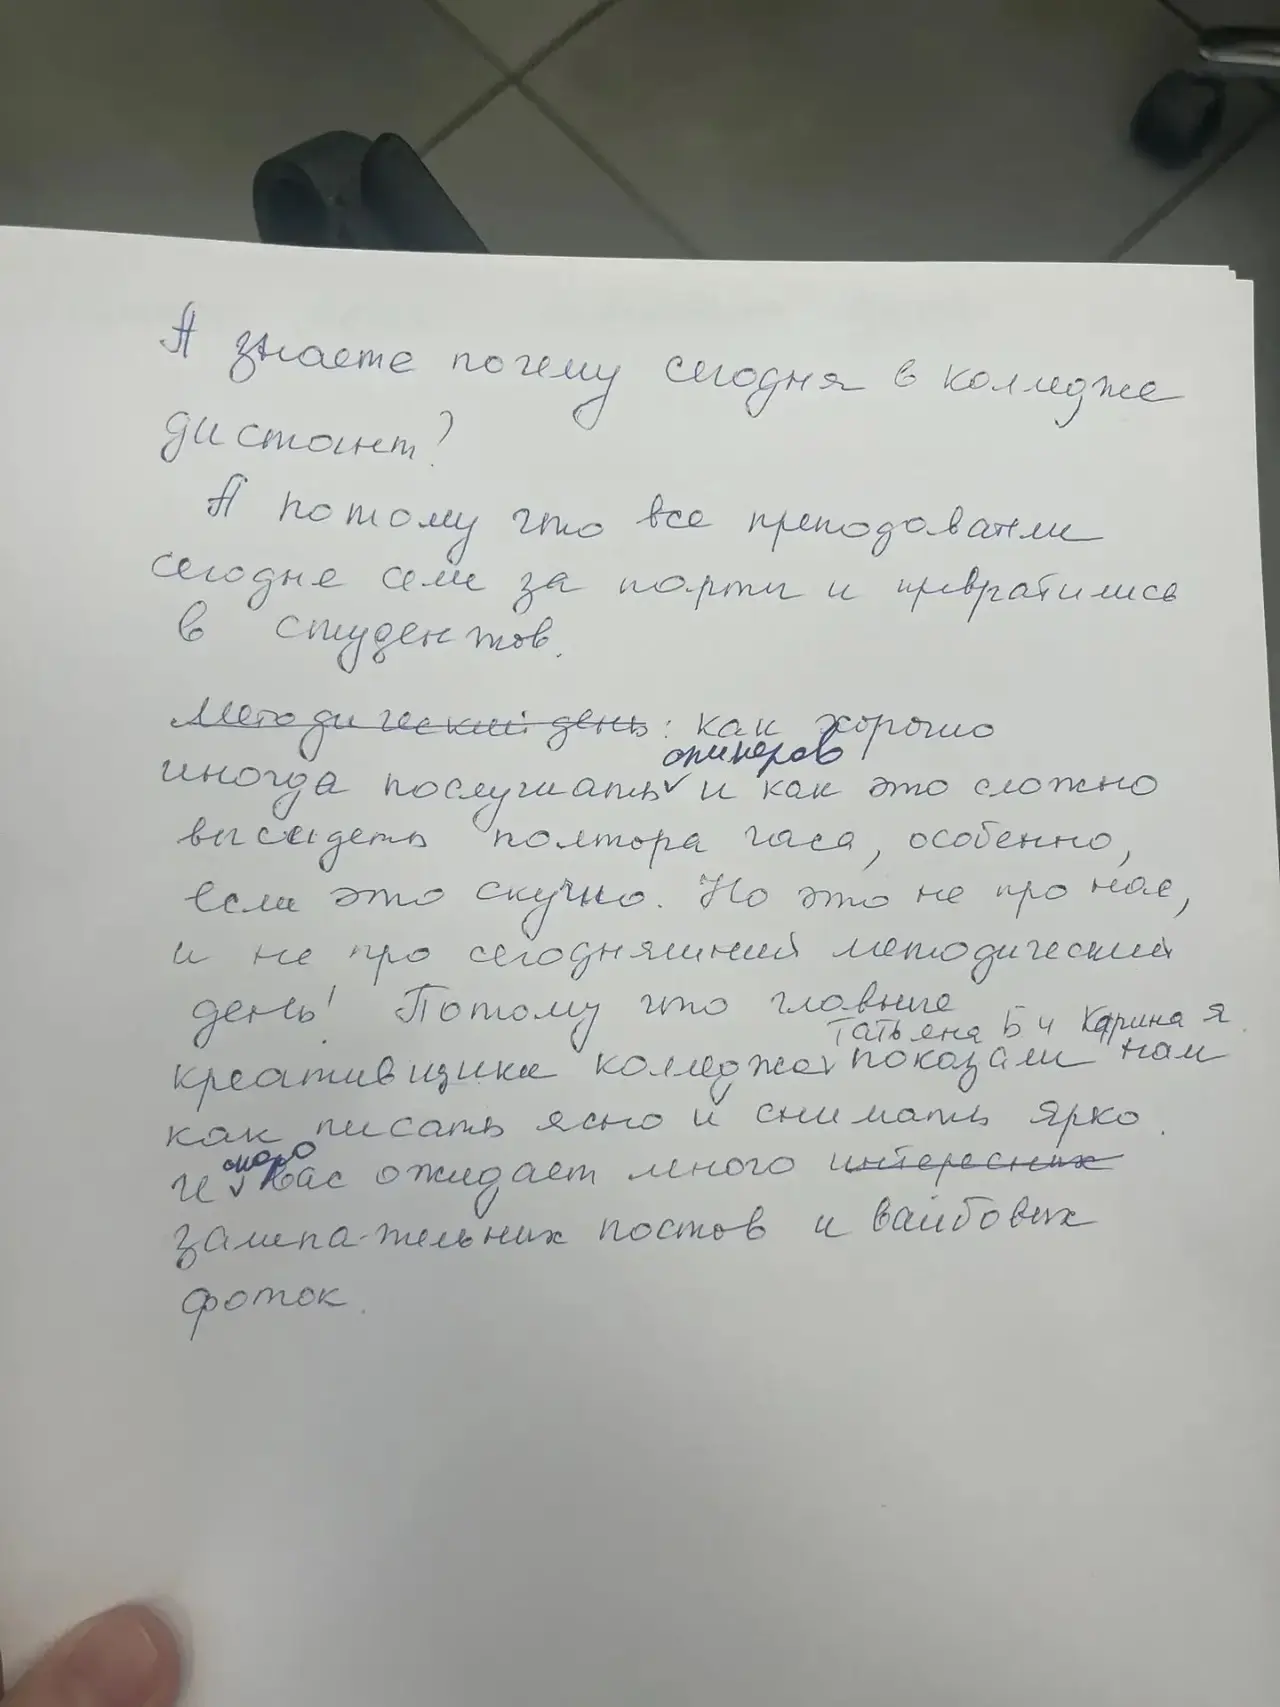 А знаете почему сегодня в колледже
дистант?
А потому что все преподователи
сегодне сели за парты и превратились
в студентов.
Методический день: как хорошо
спикеров
иногда послушать и как это сложно
высидеть полтора часа, особенно,
если это скучно. Но это не про нас,
и не про сегодняшний методический
день! Потому что главные
Татьяна Б и Карина Я.
креативщики колледжа показали нам
как писать ясно и снимать ярко.
скоро
И вас ожидает много интересных
замечательных постов и вайбовых
фоток.